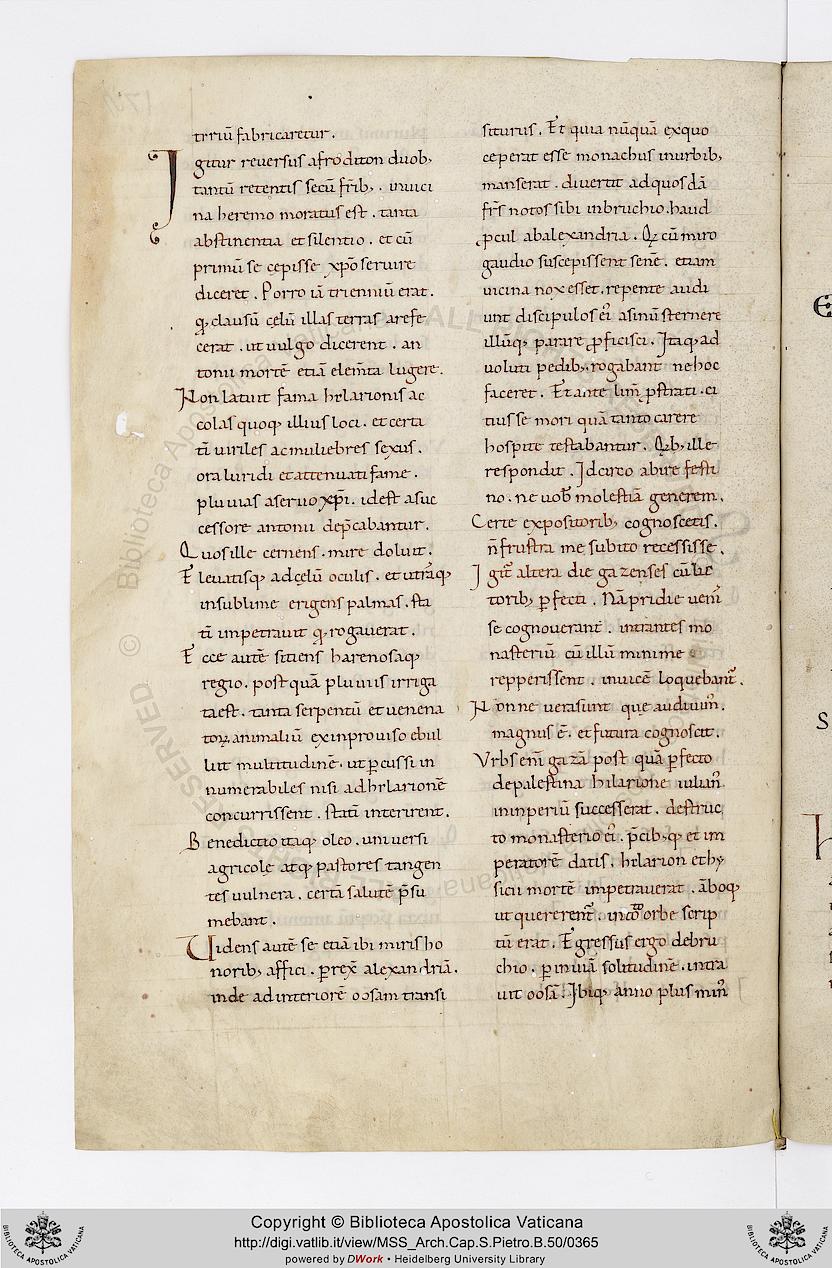 trriū fabricaretur.
Igitur reuersus afroditon duob;
tantū retentis secū frīb;. inuici
na heremo moratus est. tanta
abstinentia et silentio. et cū
primū se cepisse xp̄o seruire
diceret. Porro iā triennīu erat.
q; clausū celū illas terras arefe
cerat. ut uulgo dicerent. an
tonii mortē etiā elem̄ta lugere.
Non latuit fama hilarionis ac
colas quoq; illius loci. et certa
tī uiriles ac muliebres sexus.
ora luridi et attenuati fame.
pluuias a seruo xp̄i. idest a suc
cessore antonii dep̄cabantur.
Quos ille cernens. mire doluit.
Eleuatisq; ad celū oculis. et utrāq;
in sublime erigens palmas. sta
tī impetrauit q; rogauerat.
Ecce autē sitiens harenosaq;
regio. postquā pluuiis irriga
ta est. tanta serpentū et uenena
toꝝ animaliū ex inprouiso ebul
liit multitudinē. ut ꝑcussi in
numerabiles nisi ad hilarionē
concurrissent. statī interirent.
Benedictio itaq; oleo. uniuersi
agricole atq; pastores tangen
tes uulnera. certā salutē p̄su
mebant.
Uidens autē se etiā ibi miris ho
norib; affici. ꝑrex̄ alexandriā.
inde ad interiorē oosam transi
siturus. Et quia nūquā exquo
ceperat esse monachus in urbib;
manserat. diuertit ad quosdā
fr̄s notos sibi in bruchio. haud
ꝓcul ab alexandria. Qͥ cū miro
gaudio suscepissent senē. etiam
uicina nox esset. repente audi
unt discipulos ei᷒ asinū sternere
illūq; parare ꝓficisci. Itaq; ad
uoluti pedib;. rogabant ne hoc
faceret. Et ante lim̄ p̄strati. ci
tius se mori quā tanto carere
hospite testabantur. Qͥb; ille
respondit. Idcirco abire festi
no. ne uob̄ molestiā generem.
Certe expositorib; cognoscetis.
n̄ frustra me subito recessisse.
Igit᷑ altera die gazenses cū lic
torib; ꝑfecti. Nā pridie uenīs
se cognouerant. intrantes mo
nasteriū cū illū minime
repperissent. inuicē loquebant᷑.
Nonne uera sunt que audiuim᷒.
magnus ē. et futura cognoscit.
Vrbs enī gazā post quā ꝑfecto
de palestina hilarione iulian᷒
in inperiū successerat. destruc
to monasterio ei᷒. p̄cib; q; et im
peratorē datis. hilarion et hy
sicii mortē impetrauerat. āboq;
ut quererent᷑. in toto orbe scrip
tū erat. Egressus ergo de bru
chio. ꝑ inuiā solitudinē. intra
uit oosā. Ibiq; anno plus min᷒
Copyright © Biblioteca Apostolica Vaticana
http://digi.vatlib.it/view/MSS_Arch.Cap.S.Pietro.B.50/0365
powered by DWork • Heidelberg University Library